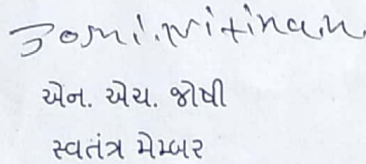 એન. એચ. જોષી
સ્વતંત્ર મેમ્બર